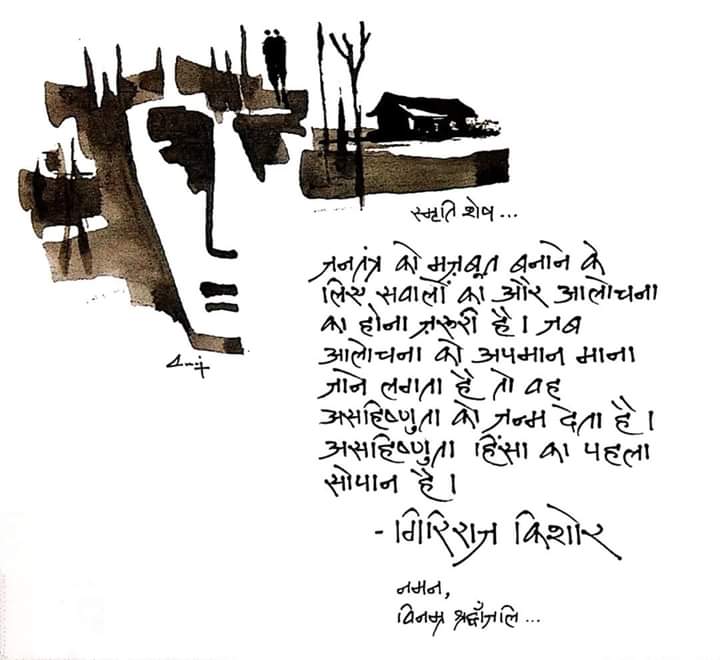 स्मृति शेष ...
जनतंत्र को मज़बूत बनाने के
लिए सवालों का और आलोचना
का होना ज़रूरी है। जब
आलोचना को अपमान माना
जाने लगता है तो वह
असहिष्णुता को जन्म देता है।
असहिष्णुता हिंसा का पहला
सोपान है।
- गिरिराज किशोर
नमन,
विनम्र श्रद्धाँजलि ...